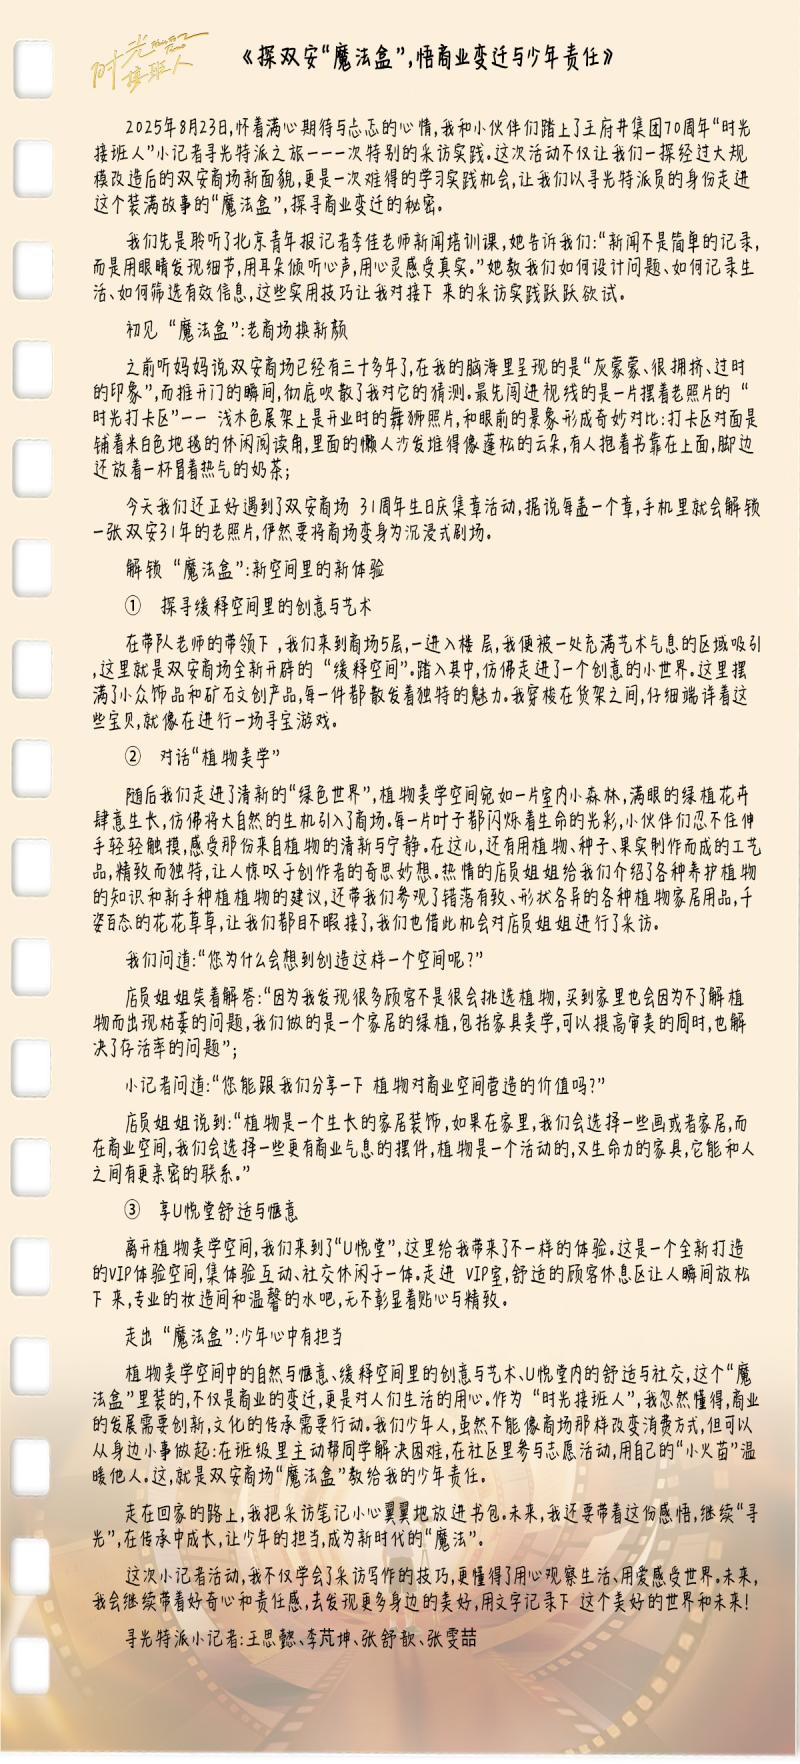 时光
接班人
《探双安“魔法盒”,悟商业变迁与少年责任》
2025年8月23日,怀着满心期待与忐忑的心情,我和小伙伴们踏上了王府井集团70周年“时光
接班人”小记者寻光特派之旅——一次特别的采访实践.这次活动不仅让我们一探经过大规
模改造后的双安商场新面貌,更是一次难得的学习实践机会,让我们以寻光特派员的身份走进
这个装满故事的“魔法盒”,探寻商业变迁的秘密.
我们先是聆听了北京青年报记者李佳老师新闻培训课,她告诉我们:“新闻不是简单的记录,
而是用眼睛发现细节,用耳朵倾听心声,用心灵感受真实.”她教我们如何设计问题、如何记录生
活、如何筛选有效信息,这些实用技巧让我对接下来的采访实践跃跃欲试.
初见“魔法盒”:老商场换新颜
之前听妈妈说双安商场已经有三十多年了,在我的脑海里呈现的是“灰蒙蒙、很拥挤、过时
的印象”,而推开门的瞬间,彻底吹散了我对它的猜测.最先闯进视线的是一片摆着老照片的“
时光打卡区”—— 浅木色展架上是开业时的舞狮照片,和眼前的景象形成奇妙对比:打卡区对面是
铺着米白色地毯的休闲阅读角,里面的懒人沙发堆得像蓬松的云朵,有人抱着书靠在上面,脚边
还放着一杯冒着热气的奶茶;
今天我们还正好遇到了双安商场 31周年生日庆集章活动,据说每盖一个章,手机里就会解锁
一张双安31年的老照片,俨然要将商场变身为沉浸式剧场.
解锁“魔法盒”:新空间里的新体验
① 探寻缓释空间里的创意与艺术
在带队老师的带领下,我们来到商场5层,一进入楼层,我便被一处充满艺术气息的区域吸引
,这里就是双安商场全新开辟的“缓释空间”.踏入其中,仿佛走进了一个创意的小世界.这里摆
满了小众饰品和矿石文创产品,每一件都散发着独特的魅力.我穿梭在货架之间,仔细端详着这
些宝贝,就像在进行一场寻宝游戏.
② 对话“植物美学”
随后我们走进了清新的“绿色世界”,植物美学空间宛如一片室内小森林,满眼的绿植花卉
肆意生长,仿佛将大自然的生机引入了商场.每一片叶子都闪烁着生命的光彩,小伙伴们忍不住伸
手轻轻触摸,感受那份来自植物的清新与宁静.在这儿,还有用植物、种子、果实制作而成的工艺
品,精致而独特,让人惊叹于创作者的奇思妙想.热情的店员姐姐给我们介绍了各种养护植物
的知识和新手种植植物的建议,还带我们参观了错落有致、形状各异的各种植物家居用品,千
姿百态的花花草草,让我们都目不暇接了,我们也借此机会对店员姐姐进行了采访.
我们问道:“您为什么会想到创造这样一个空间呢?”
店员姐姐笑着解答:“因为我发现很多顾客不是很会挑选植物,买到家里也会因为不了解植
物而出现枯萎的问题,我们做的是一个家居的绿植,包括家具美学,可以提高审美的同时,也解
决了存活率的问题”;
小记者问道:“您能跟我们分享一下 植物对商业空间营造的价值吗?”
店员姐姐说到:“植物是一个生长的家居装饰,如果在家里,我们会选择一些画或者家居,而
在商业空间,我们会选择一些更有商业气息的摆件,植物是一个活动的,又生命力的家具,它能和人
之间有更亲密的联系.”
③ 享U悦堂舒适与惬意
离开植物美学空间,我们来到了“U悦堂”,这里给我带来了不一样的体验.这是一个全新打造
的VIP体验空间,集体验互动、社交休闲于一体.走进 VIP室,舒适的顾客休息区让人瞬间放松
下来,专业的妆造间和温馨的水吧,无不彰显着贴心与精致.
走出“魔法盒”:少年心中有担当
植物美学空间中的自然与惬意、缓释空间里的创意与艺术、U悦堂内的舒适与社交,这个“魔
法盒”里装的,不仅是商业的变迁,更是对人们生活的用心.作为“时光接班人”,我忽然懂得,商业
的发展需要创新,文化的传承需要行动.我们少年人,虽然不能像商场那样改变消费方式,但可以
从身边小事做起:在班级里主动帮同学解决困难,在社区里参与志愿活动,用自己的“小火苗”温
暖他人.这,就是双安商场“魔法盒”教给我的少年责任.
走在回家的路上,我把采访笔记小心翼翼地放进书包.未来,我还要带着这份感悟,继续“寻
光”,在传承中成长,让少年的担当,成为新时代的“魔法”.
这次小记者活动,我不仅学会了采访写作的技巧,更懂得了用心观察生活、用爱感受世界.未来,
我会继续带着好奇心和责任感,去发现更多身边的美好,用文字记录下 这个美好的世界和未来!
寻光特派小记者:王思懿、李芃坤、张舒歆、张雯喆